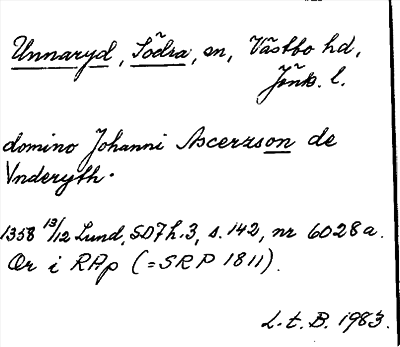 Unnaryd, Södra, sn, Västbo hd,
Jönk. l.
domino Johanni Ascerzson de
Vnderyth.
1358 13/12 Lund, SD7h.3, s.142, nr 6028a.
Or i RAp (=SRP 1811).
L.t.B. 1983.